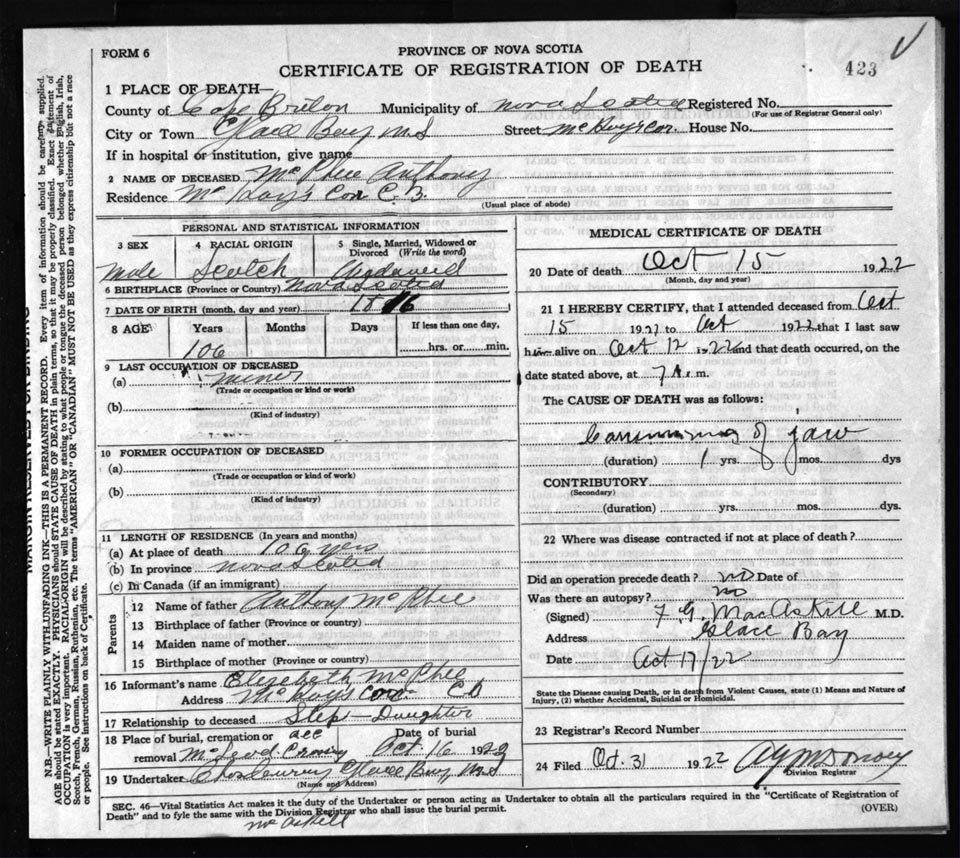 FORM 6
PROVINCE OF NOVA SCOTIA
CERTIFICATE OF REGISTRATION OF DEATH
423
1 PLACE OF DEATH—
County of Cape Breton Municipality of Nova Scotia Registered No.
(For use of Registrar General only)
City or Town Glace Bay N.S Street McKay's Cor. House No.
If in hospital or institution, give name
2 NAME OF DECEASED McPhee Anthony
Residence McKay's Cor C.B.
(Usual place of abode)
PERSONAL AND STATISTICAL INFORMATION
3 SEX 4 RACIAL ORIGIN 5 Single, Married, Widowed or Divorced (Write the word)
Male Scotch
6 BIRTHPLACE (Province or Country) Nova Scotia
7 DATE OF BIRTH (month, day and year) 1816
8 AGE Years Months Days If less than one day,
106 hrs. or min.
9 LAST OCCUPATION OF DECEASED
(a) miner
(Trade or occupation or kind or work)
(b)
(Kind of industry)
10 FORMER OCCUPATION OF DECEASED
(a)
(Trade or occupation or kind of work)
(b)
(Kind of industry)
11 LENGTH OF RESIDENCE (In years and months)
(a) At place of death 106 yers
(b) In province Nova Scotia
(c) In Canada (if an immigrant)
Parents
12 Name of father Anthony McPhee
13 Birthplace of father (Province or country)
14 Maiden name of mother
15 Birthplace of mother (Province or country)
16 Informant's name Elizebeth McPhee
Address McKay's Cor CB
17 Relationship to deceased Step-Daughter
18 Place of burial, cremation or removal Date of burial
McLeod Crossing Oct 16 1922
19 Undertaker Chas Curry Glace Bay N.S
(Name and Address)
MEDICAL CERTIFICATE OF DEATH
20 Date of death Oct 15 1922
(Month, day and year)
21 I HEREBY CERTIFY, that I attended deceased from Oct
15 1921 to Oct 1922 that I last saw
him alive on Oct 12 1922 and that death occurred, on the
date stated above, at 7 A. m.
The CAUSE OF DEATH was as follows:
of jaw
(duration) 1 yrs. 8 mos. dys
CONTRIBUTORY
(Secondary)
(duration) yrs. mos. dys.
22 Where was disease contracted if not at place of death?
Did an operation precede death? no Date of
Was there an autopsy? no
(Signed) F. G. MacAskill M.D.
Address Glace Bay
Date Oct 17/22
State the Disease causing Death, or in death from Violent Causes, state (1) Means and Nature of Injury, (2) whether Accidental, Suicidal or Homicidal.
23 Registrar's Record Number
24 Filed Oct. 31 1922
Division Registrar
SEC. 46—Vital Statistics Act makes it the duty of the Undertaker or person acting as Undertaker to obtain all the particulars required in the "Certificate of Registration of
Death" and to fyle the same with the Division Registrar who shall issue the burial permit. (OVER)
McAskill
MARGIN RESERVED FOR BINDING
N.B.—WRITE PLAINLY WITH UNFADING INK—THIS IS A PERMANENT RECORD. Every item of information should be carefully supplied.
AGE should be stated EXACTLY. PHYSICIANS should STATE CAUSE OF DEATH in plain terms, so that it may be properly classified. Exact statement of
OCCUPATION is very important. RACIAL ORIGIN will be described by stating to what people or tongue the deceased person belonged whether English, Irish,
Scotch, French, German, Russian, Ruthenian, etc. The terms "AMERICAN" or "CANADIAN" MUST NOT BE USED as they express citizenship but not a race
or people. See instructions on back of Certificate.